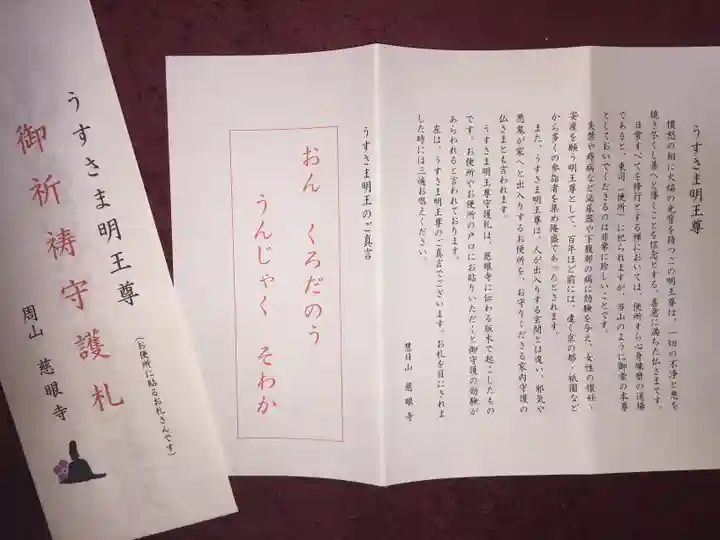 うすさま明王尊
御祈祷守護札
(お便所に貼るお札さんです)
周山 慈眼寺
うすさま明王尊
憤怒の相に火焔の光背を持つこの明王尊は、一切の不浄と悪を
焼き尽くし善へと導くことを信念とする、善意に満ちた仏さまです。
日常すべてを修行とする禅においては、便所すら心身練磨の道場
であると、東司(便所)に祀られますが、当山のように御堂の本尊
としておいでくださるのは非常に珍しいことです。
失禁や痔病など泌尿器や下腹部の病に効験を与え、女性の懐妊〜
安産を願う明王尊として、百年ほど前には、遠く京の都・祇園など
から多くの参詣者を集め隆盛であったとされます。
また、うすさま明王尊は、人が出入りする玄関とは違い、邪気や
悪鬼が家へと出入りするお便所を、お守りくださる家内守護の
仏さまとも言われます。
うすさま明王尊守護札は、慈眼寺に伝わる版木で起こしたもの
です。お便所やお便所の戸口にお貼りいただくと御守護の効験が
あらわれると言われております。
左は、うすさま明王尊のご真言でございます。お札を目にされま
した時には三遍お唱えください。
慧日山 慈眼寺
うすさま明王のご真言
おん くろだのう
うんじゃく そわか